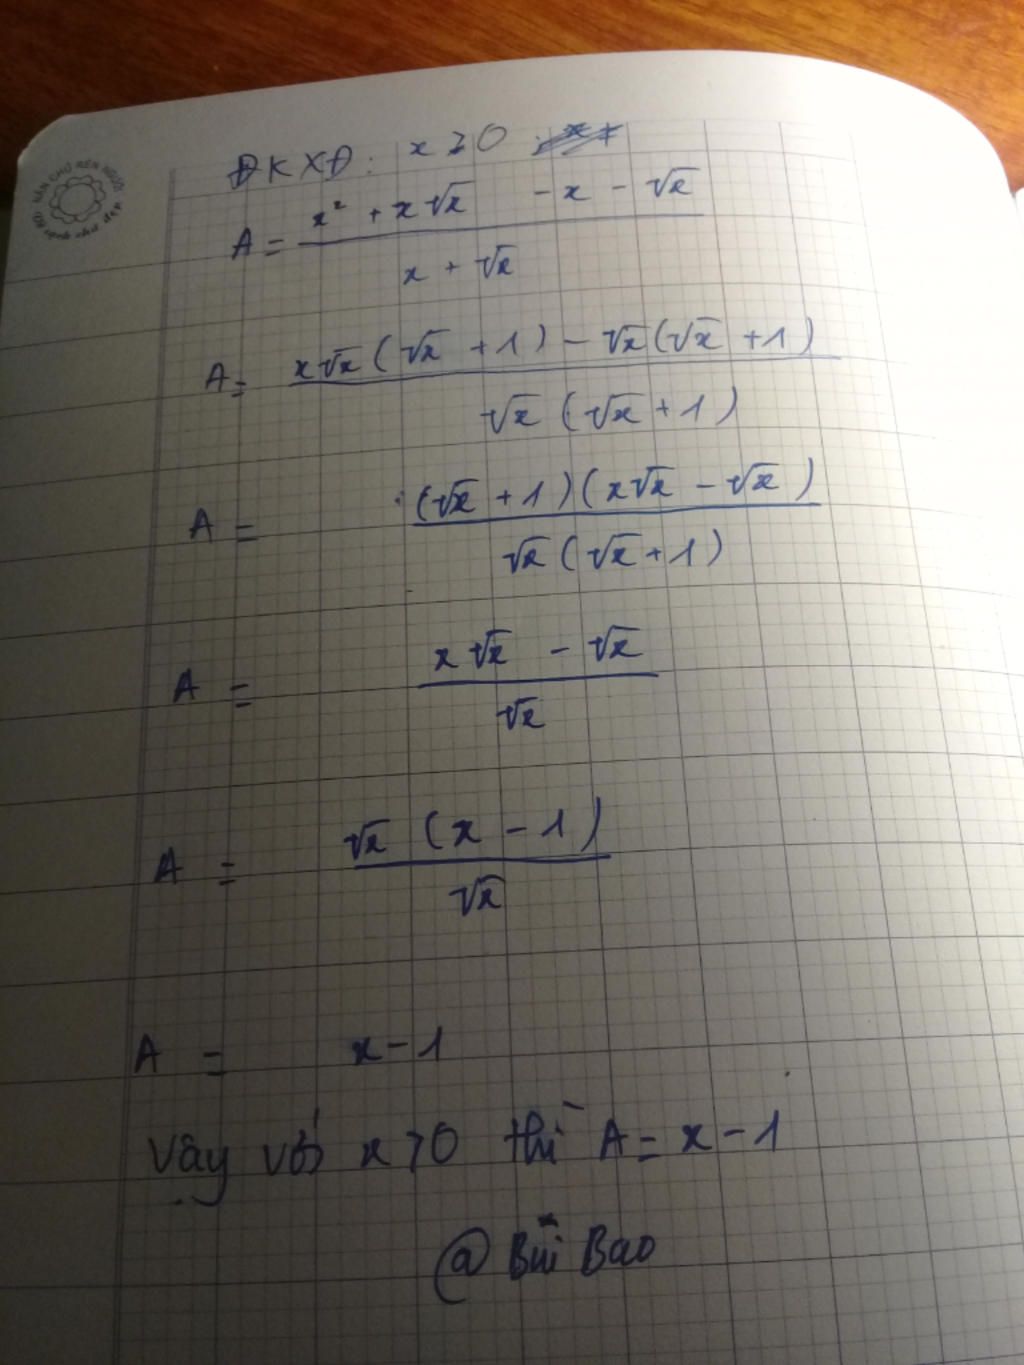 NÉT CHỮ NẾT NGƯỜI
ĐKXĐ: x ≥ 0
A = (x² + x√x - x - √x) / (x + √x)
A = (x√x(√x + 1) - √x(√x + 1)) / (√x(√x + 1))
A = ((√x + 1)(x√x - √x)) / (√x(√x + 1))
A = (x√x - √x) / √x
A = (√x(x - 1)) / √x
A = x - 1
Vậy với x > 0 thì A = x - 1
@ Bùi Bao